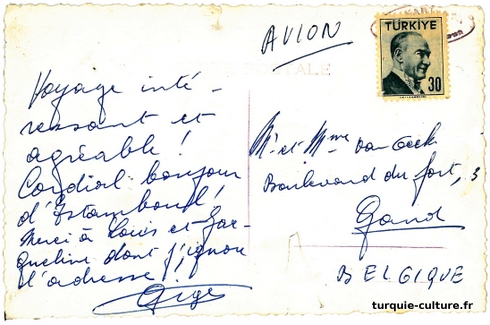 AVION
TÜRKİYE
30
Voyage inté-
ressant et
agréable !
Cordial bonjour
d'Istamboul,
Merci à Louis et Jac-
queline dont j'ignore
l'adresse
Mr et Mme Van
Boulevard du fort, 3
Gand
BELGIQUE
turquie-culture.fr